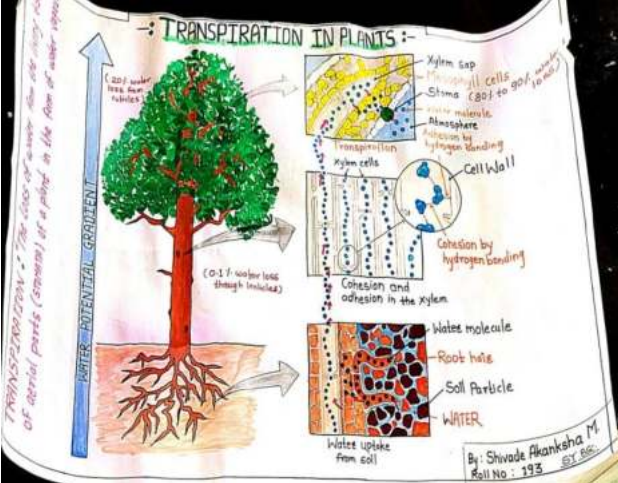 -: TRANSPIRATION IN PLANTS :-
TRANSPIRATION : "The loss of water from the living
of aerial parts (stomata) of a plant in the form of water
WATER POTENTIAL GRADIENT
(20% water
loss from
cuticles)
(0.1% water loss
though
Xylem sap
Mesophyll cells
Stoma (80% to 90%
water molecule
Atmosphere
Adhesion by
hydrogen bonding
Transpiration
Xylem cells
Cell Wall
Cohesion by
hydrogen bonding
Cohesion and
adhesion in the xylem
Water molecule
Root hair
Soil Particle
WATER
Water uptake
from soil
By: Shivade Akanksha M.
Roll No : 193